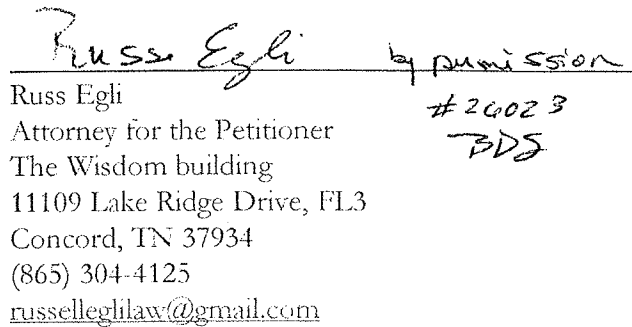 Russ Egli by permission
Russ Egli
#26023
Attorney for the Petitioner
BDS
The Wisdom building
11109 Lake Ridge Drive, FL3
Concord, TN 37934
(865) 304-4125
russelleglilaw@gmail.com